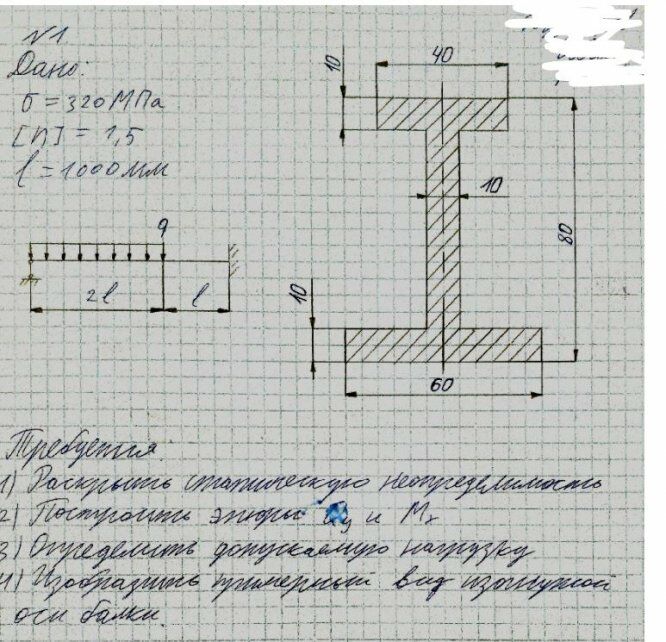 №1
Дано:
σ = 320 МПа
[n] = 1,5
l = 1000 мм
q
2l
l
40
10
10
80
10
60
Требуется
1) Раскрыть статическую неопределимость
2) Построить эпюры Qy и Mx
3) Определить допускаемую нагрузку
4) Изобразить примерный вид изогнутой
оси балки.